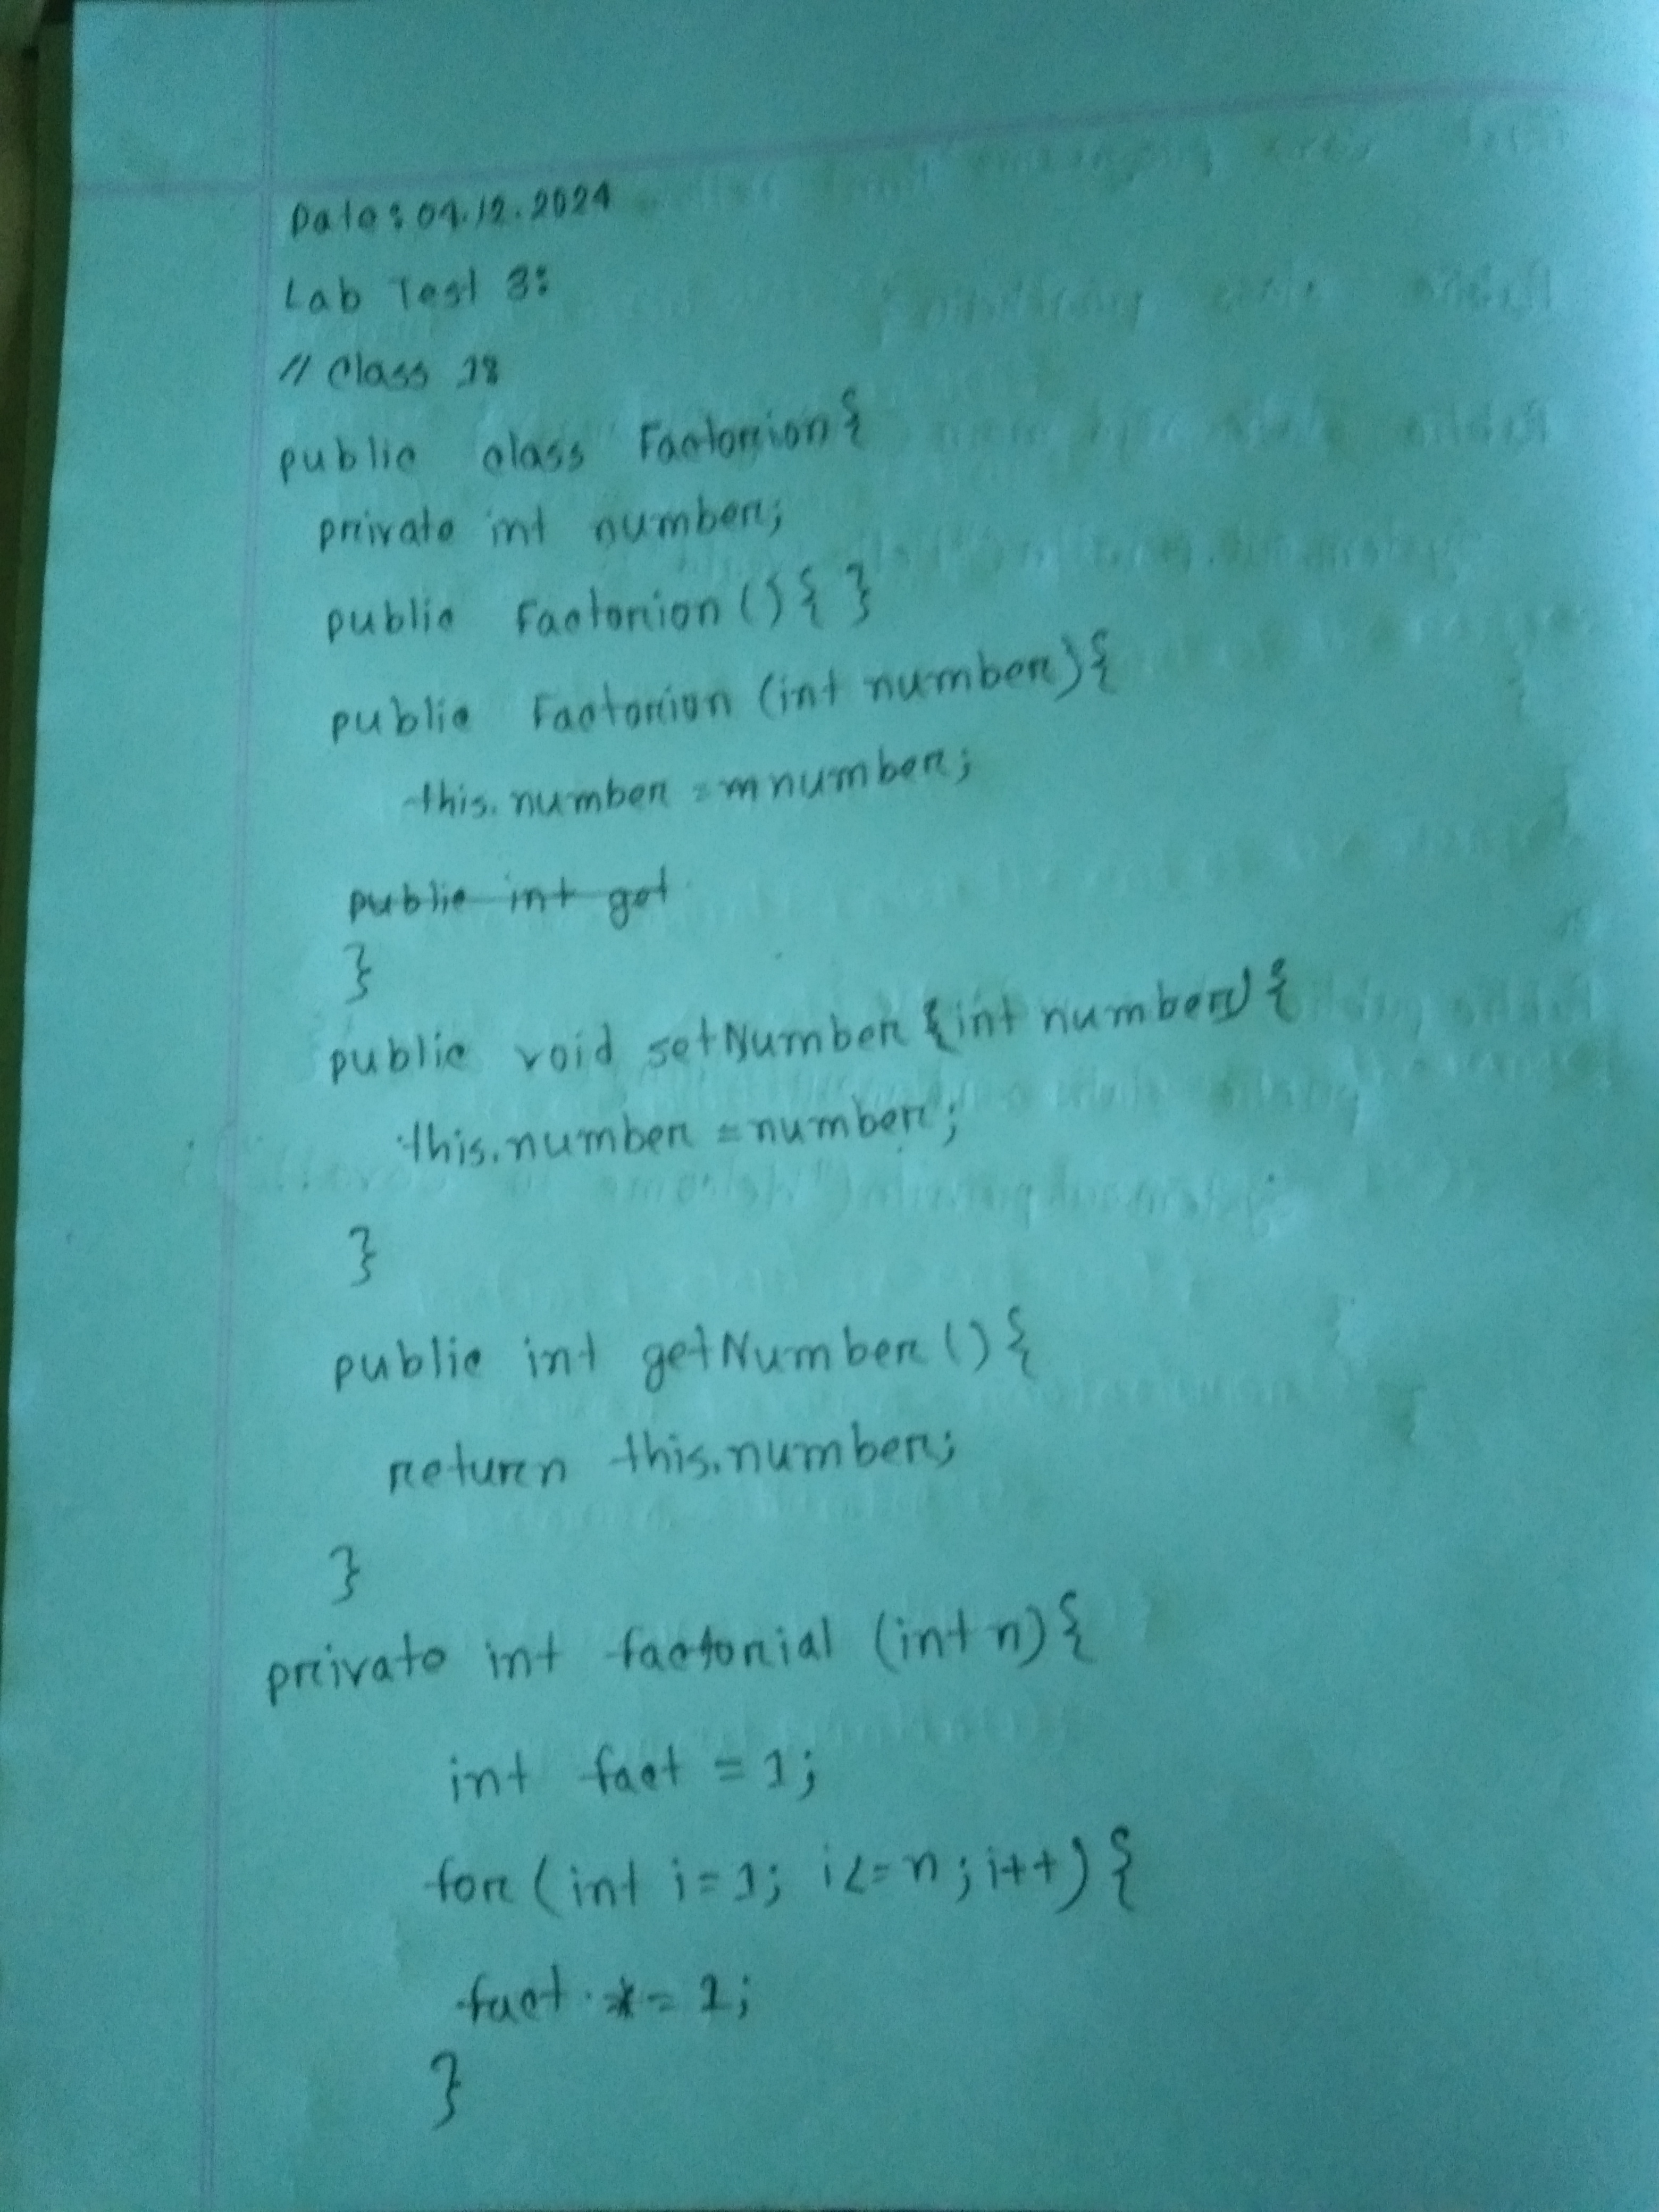 Date: 04.12.2024
Lab Test 3:
// Class 18
public class Factorion{
private int number;
public Factorion(){ }
public Factorion (int number){
this.number = mnumber;
public int get
}
public void setNumber {int number){
this.number = number;
}
public int getNumber(){
return this.number;
}
private int factorial (int n){
int fact = 1;
for (int i=1; i<=n; i++){
fact *= 1;
}